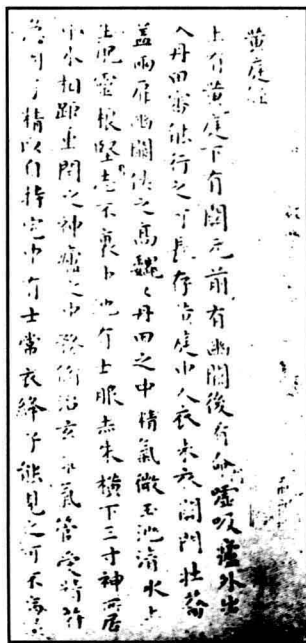 黄庭經
上有黄庭下有關元前有幽關後有命噓吸廬外出
入丹田審能行之可長存黄庭中人衣朱衣關門壯籥
蓋兩扉幽關俠之高巍々丹田之中精氣微玉池清水上
生肥靈根堅志不衰中池有士服赤朱横下三寸神所居
中外相距重閉之神廬之中務脩治玄氣管受精符
急固子精以自持宅中有士常衣絳子能見之可不病